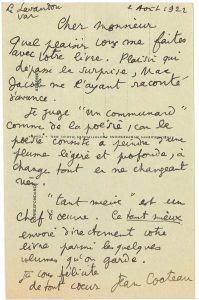 Le Lavandou
Var
2 Août 1922
Cher Monsieur
Quel plaisir vous me faites
avec votre livre. Plaisir qui
dépasse la surprise, Max
Jacob me l'ayant raconté
d'avance.
Je juge "Un communard"
comme de la poésie, car la
poésie consiste à peindre d'une
plume légère et profonde, à
change tout en ne changeant
rien.
"tant mieux" est un
chef d'œuvre. Le tant mieux
envoie directement votre
livre parmi les quelques
volumes qu'on garde.
Je vous félicite
de tout cœur Jean Cocteau